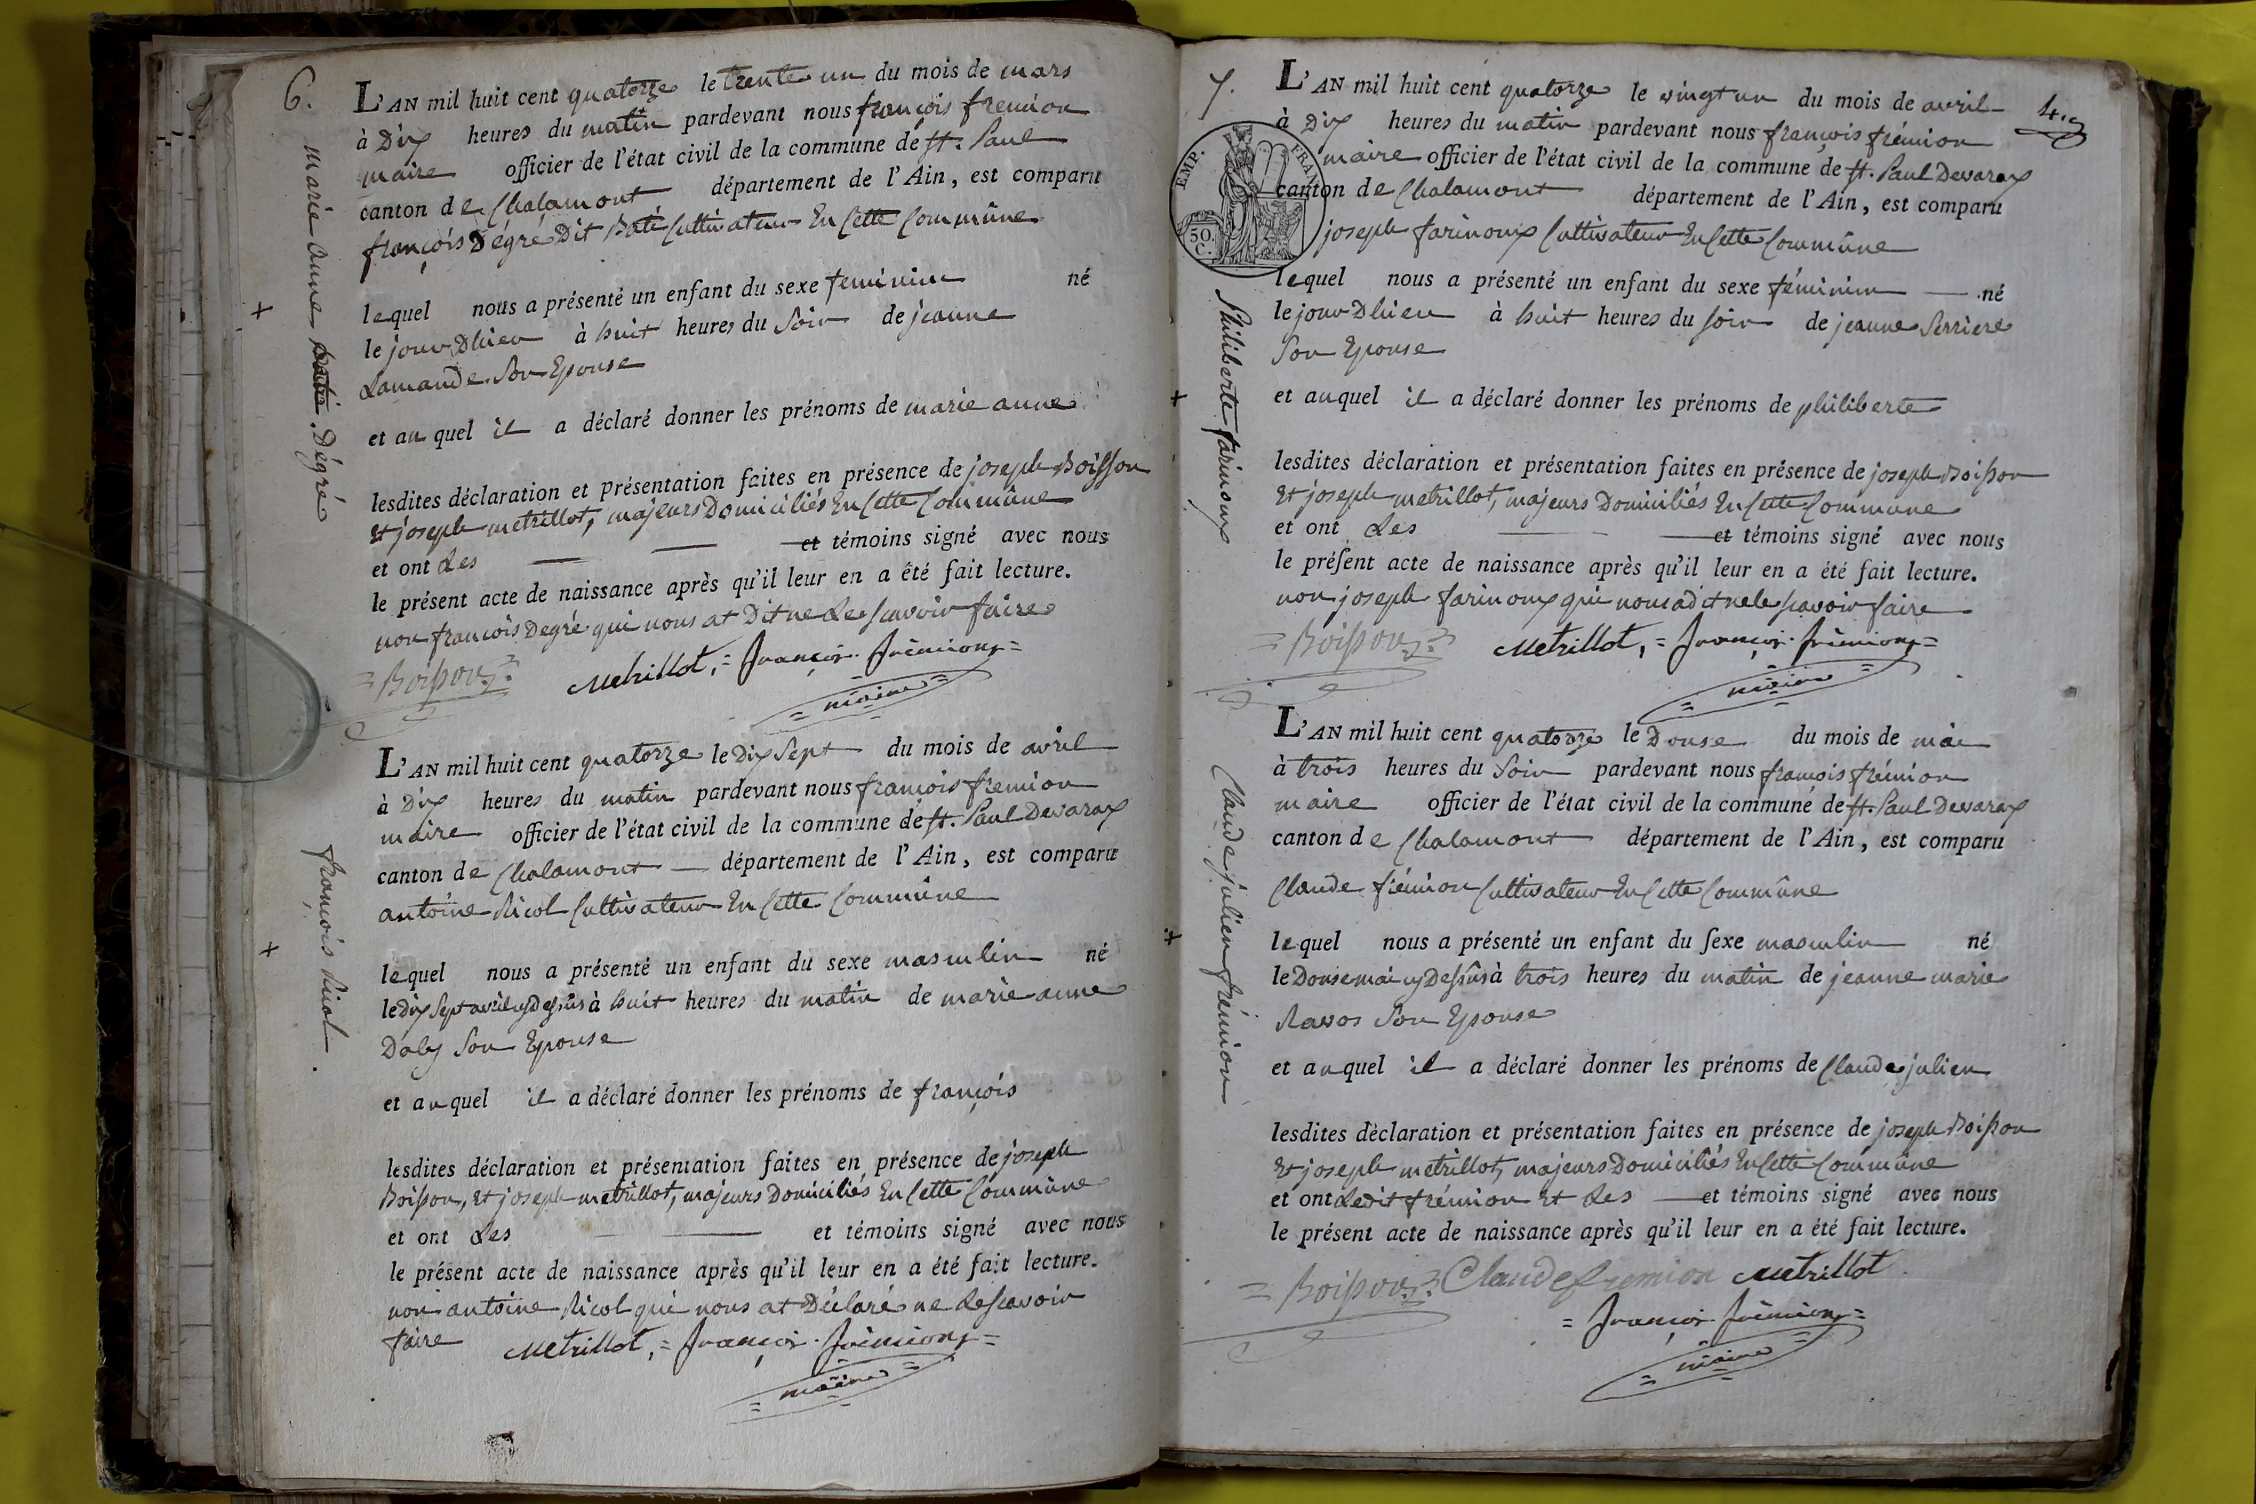 6.
L'AN mil huit cent quatorze le trente un du mois de mars
à Dix heures du matin pardevant nous françois fremion
maire officier de l'état civil de la commune de St. Paul
canton de Chalamont département de l'Ain, est comparu
françois Dégré Dit Batié Cultivateur En Cette Commûne
lequel nous a présenté un enfant du sexe feminin né
le jour Dhier à huit heures du Soir de jeanne
Lamande Son Epouse
et au quel il a déclaré donner les prénoms de marie anne
lesdites déclaration et présentation faites en présence de joseph Boisson
Et joseph metrillot, majeurs Domiciliés En Cette Commûne
et ont Les et témoins signé avec nous
le présent acte de naissance après qu'il leur en a été fait lecture.
non françois Degré qui nous at Dit ne Le scavoir faire
Boisson Metrillot, = françois frémion =
= maire =
marie anne Dégré
L'AN mil huit cent quatorze le Dix Sept du mois de avril
à Dix heures du matin pardevant nous françois fremion
maire officier de l'état civil de la commune de St. Paul Devarax
canton de Chalamont département de l'Ain, est comparu
antoine Nicol Cultivateur En Cette Commûne
lequel nous a présenté un enfant du sexe masculin né
le Dix Sept avril cy Dessus à huit heures du matin de marie anne
Daly Son Epouse
et auquel il a déclaré donner les prénoms de françois
lesdites déclaration et présentation faites en présence de joseph
Boisson, Et joseph metrillot, majeurs Domiciliés En Cette Commûne
et ont Les et témoins signé avec nous
le présent acte de naissance après qu'il leur en a été fait lecture.
non antoine Nicol qui nous at Déclaré ne Le scavoir
faire Metrillot, = françois frémion =
= maire =
françois Nicol.
7.
4.e
EMP. FRAN.
50. C.
L'AN mil huit cent quatorze le vingt un du mois de avril
à Dix heures du matin pardevant nous françois frémion
maire officier de l'état civil de la commune de St. Paul Devarax
canton de Chalamont département de l'Ain, est comparu
joseph farinoux Cultivateur En Cette Commûne
lequel nous a présenté un enfant du sexe féminin né
le jour Dhier à huit heures du soir de jeanne Serriere
Son Epouse
et auquel il a déclaré donner les prénoms de philiberte
lesdites déclaration et présentation faites en présence de joseph Boisson
Et joseph metrillot, majeurs Domiciliés En Cette Commune
et ont Les et témoins signé avec nous
le présent acte de naissance après qu'il leur en a été fait lecture.
non joseph farinoux qui nous a dit ne le scavoir faire
= Boisson Metrillot, = françois frémion =
= maire =
Philiberte farinoux
L'AN mil huit cent quatorze le Douse du mois de mai
à trois heures du Soir pardevant nous françois frémion
maire officier de l'état civil de la commune de St. Paul Devarax
canton de Chalamont département de l'Ain, est comparu
Claude frémion Cultivateur En Cette Commûne
lequel nous a présenté un enfant du sexe masculin né
le Douse mai cy Dessus à trois heures du matin de jeanne marie
Ravos Son Epouse
et auquel il a déclaré donner les prénoms de Claude julien
lesdites déclaration et présentation faites en présence de joseph Boisson
Et joseph metrillot, majeurs Domiciliés En Cette Commûne
et ont Ledit frémion Et Les et témoins signé avec nous
le présent acte de naissance après qu'il leur en a été fait lecture.
= Boisson Claude fremion Metrillot
= françois frémion =
= maire =
Claude julien frémion